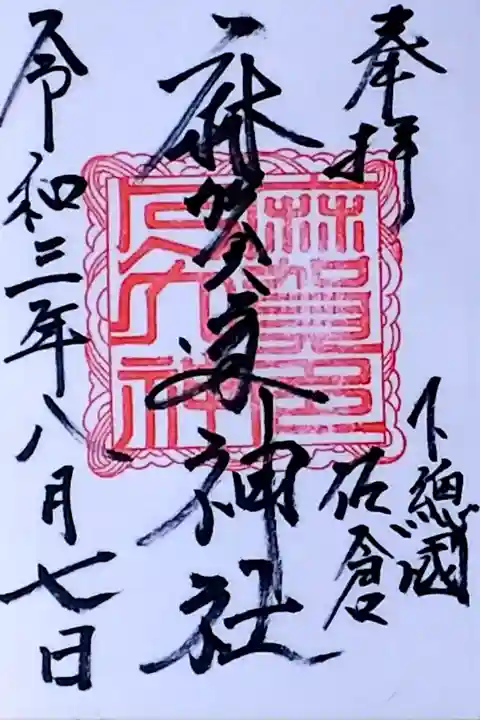 奉拝
下總國
佐倉
麻賀多神社
令和三年八月七日